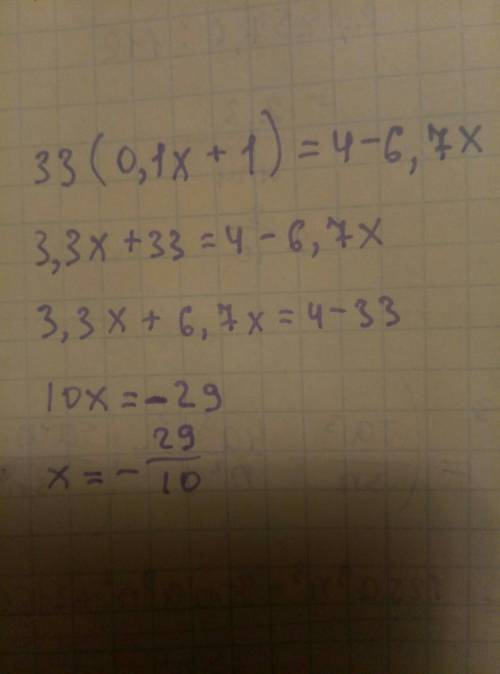 33(0,1x+1)=4-6,7x
3,3x+33=4-6,7x
3,3x+6,7x=4-33
10x=-29
x=-29/10